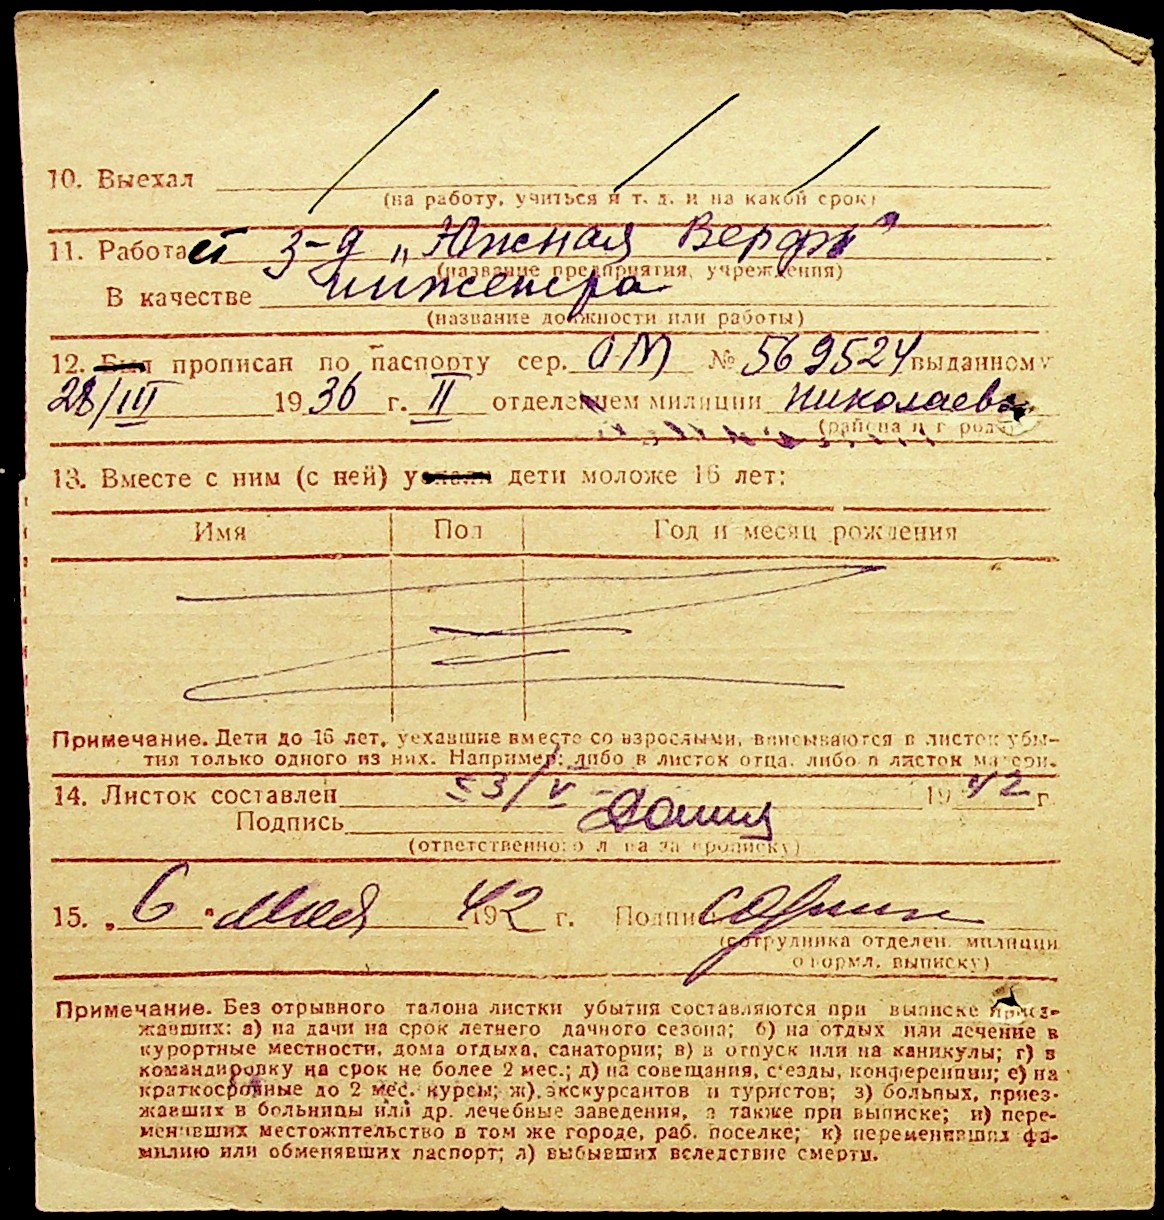 10. Выехал
(на работу, учиться и т. д. и на какой срок)
11. Работает з-д „Южная Верфь"
(название предприятия, учреждения)
В качестве инженера
(название должности или работы)
12. Был прописан по паспорту сер. ОМ № 569524 выданному
28/III 1936 г. II отделением милиции Николаева
(района и г. рода)
13. Вместе с ним (с ней) уехали дети моложе 16 лет:
Имя Пол Год и месяц рождения
Примечание. Дети до 16 лет, уехавшие вместе со взрослыми, вписываются в листок убы-
тия только одного из них. Например: либо в листок отца, либо в листок матери.
14. Листок составлен 3/V 1942 г.
Подпись
(ответственного л на за прописку)
15. „6" мая 1942 г. Подпись
(сотрудника отделен. милиции
оформл. выписку)
Примечание. Без отрывного талона листки убытия составляются при выписке приез-
жавших: а) на дачи на срок летнего дачного сезона; б) на отдых или лечение в
курортные местности, дома отдыха, санатории; в) в отпуск или на каникулы; г) в
командировку на срок не более 2 мес.; д) на совещания, с'езды, конференции; е) на
краткосрочные до 2 мес. курсы; ж) экскурсантов и туристов; з) больных, приез-
жавших в больницы или др. лечебные заведения, а также при выписке; и) пере-
менивших местожительство в том же городе, раб. поселке; к) переменивших фа-
милию или обменявших паспорт; л) выбывших вследствие смерти.